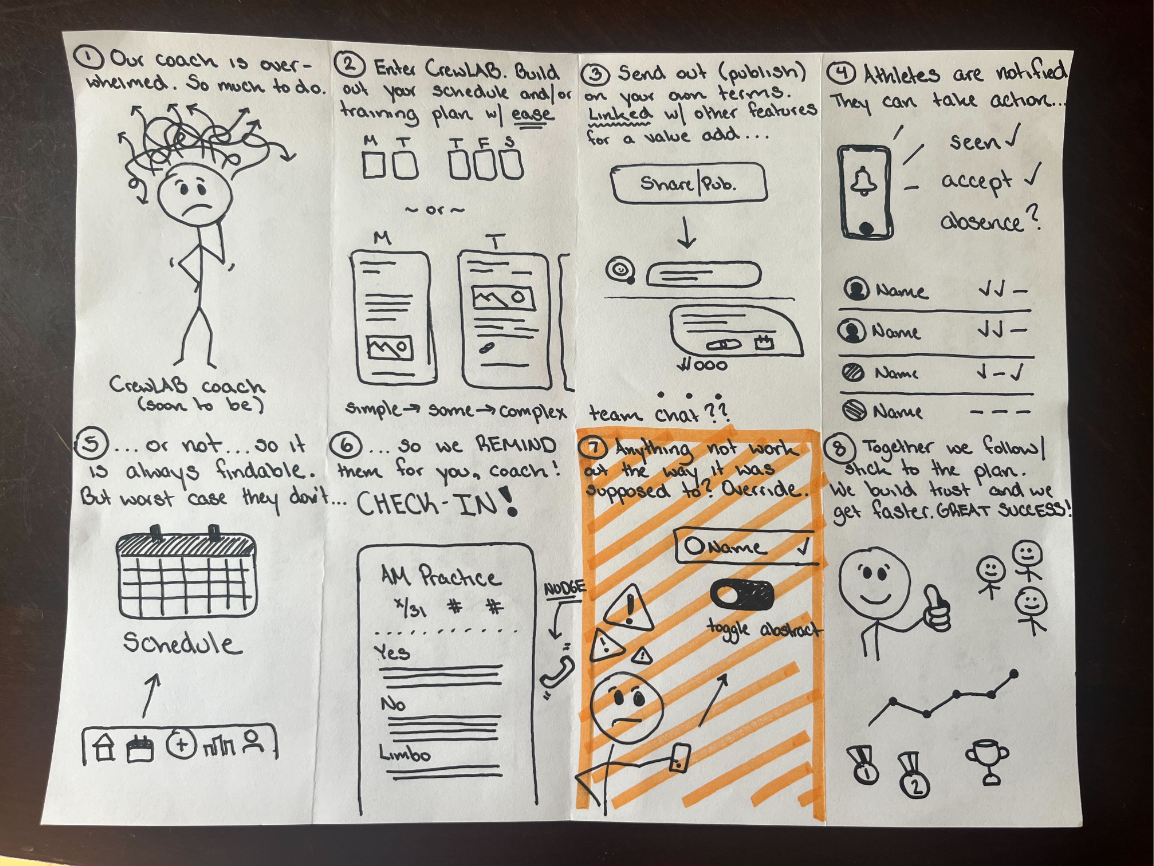 ① Our coach is over-
whelmed. So much to do.
CrewLAB coach
(soon to be)
② Enter CrewLAB. Build
out your schedule and/or
training plan w/ ease
M T T F S
~ or ~
M T
simple → some → complex
③ Send out (publish)
on your own terms.
Linked w/ other features
for a value add....
Share/Pub.
team chat??
④ Athletes are notified
They can take action...
seen ✓
accept ✓
absence?
Name ✓✓–
Name ✓✓–
Name ✓–✓
Name – – –
⑤ ... or not... so it
is always findable.
But worst case they don't...
Schedule
⑥ ... so we REMIND
them for you, coach!
CHECK-IN!
AM Practice
x/31 # #
Yes
No
Limbo
NUDGE
⑦ Anything not work
out the way it was
supposed to? Override.
Name ✓
toggle abstract
⑧ Together we follow/
stick to the plan.
We build trust and we
get faster. GREAT SUCCESS!
1
2